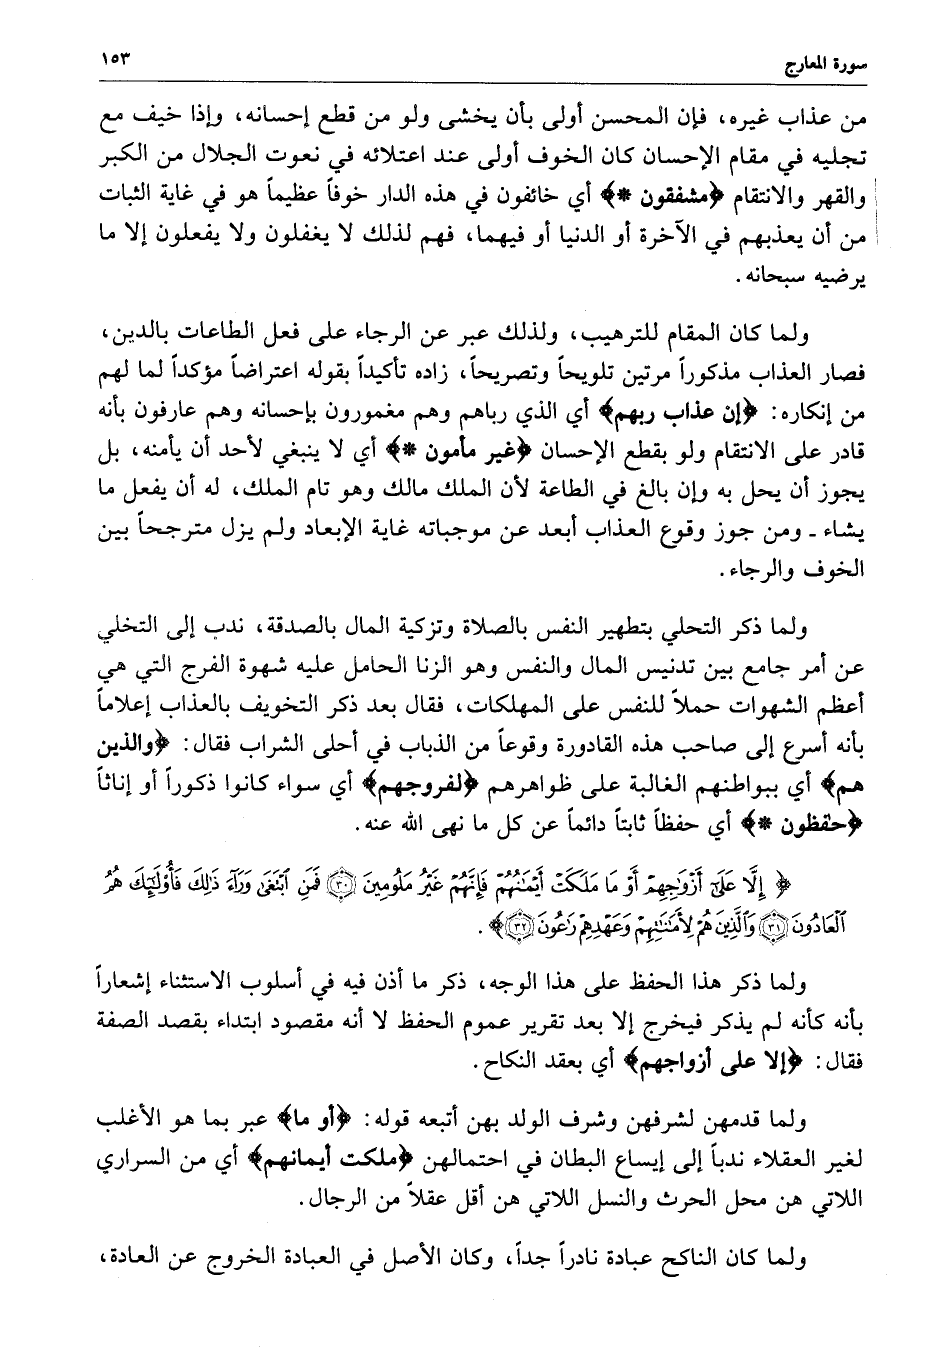 سورة المعارج
١٥٣
من عذاب غيره، فإن المحسن أولى بأن يخشى ولو من قطع إحسانه، وإذا خيف مع
تجليه في مقام الإحسان كان الخوف أولى عند اعتلائه في نعوت الجلال من الكبر
والقهر والانتقام ﴿مشفقون *﴾ أي خائفون في هذه الدار خوفاً عظيماً هو في غاية الثبات
من أن يعذبهم في الآخرة أو الدنيا أو فيهما، فهم لذلك لا يغفلون ولا يفعلون إلا ما
يرضيه سبحانه.
ولما كان المقام للترهيب، ولذلك عبر عن الرجاء على فعل الطاعات بالدين،
فصار العذاب مذكوراً مرتين تلويحاً وتصريحاً، زاده تأكيداً بقوله اعتراضاً مؤكداً لما لهم
من إنكاره: ﴿إن عذاب ربهم﴾ أي الذي رباهم وهم مغمورون بإحسانه وهم عارفون بأنه
قادر على الانتقام ولو بقطع الإحسان ﴿غير مأمون *﴾ أي لا ينبغي لأحد أن يأمنه، بل
يجوز أن يحل به وإن بالغ في الطاعة لأن الملك مالك وهو تام الملك، له أن يفعل ما
يشاء ـ ومن جوز وقوع العذاب أبعد عن موجباته غاية الإبعاد ولم يزل مترجحاً بين
الخوف والرجاء.
ولما ذكر التحلي بتطهير النفس بالصلاة وتزكية المال بالصدقة، ندب إلى التخلي
عن أمر جامع بين تدنيس المال والنفس وهو الزنا الحامل عليه شهوة الفرج التي هي
أعظم الشهوات حملاً للنفس على المهلكات، فقال بعد ذكر التخويف بالعذاب إعلاماً
بأنه أسرع إلى صاحب هذه القادورة وقوعاً من الذباب في أحلى الشراب فقال: ﴿والذين
هم﴾ أي ببواطنهم الغالبة على ظواهرهم ﴿لفروجهم﴾ أي سواء كانوا ذكوراً أو إناثاً
﴿حٰفظون *﴾ أي حفظاً ثابتاً دائماً عن كل ما نهى الله عنه.
﴿إِلَّا عَلَىٰٓ أَزْوَٰجِهِمْ أَوْ مَا مَلَكَتْ أَيْمَٰنُهُمْ فَإِنَّهُمْ غَيْرُ مَلُومِينَ ٣٠ فَمَنِ ٱبْتَغَىٰ وَرَآءَ ذَٰلِكَ فَأُو۟لَٰٓئِكَ هُمُ
ٱلْعَادُونَ ٣١ وَٱلَّذِينَ هُمْ لِأَمَٰنَٰتِهِمْ وَعَهْدِهِمْ رَٰعُونَ ٣٢﴾.
ولما ذكر هذا الحفظ على هذا الوجه، ذكر ما أذن فيه في أسلوب الاستثناء إشعاراً
بأنه كأنه لم يذكر فيخرج إلا بعد تقرير عموم الحفظ لا أنه مقصود ابتداء بقصد الصفة
فقال: ﴿إلا على أزواجهم﴾ أي بعقد النكاح.
ولما قدمهن لشرفهن وشرف الولد بهن أتبعه قوله: ﴿أو ما﴾ عبر بما هو الأغلب
لغير العقلاء ندباً إلى إيساع البطان في احتمالهن ﴿ملكت أيمانهم﴾ أي من السراري
اللاتي هن محل الحرث والنسل اللاتي هن أقل عقلاً من الرجال.
ولما كان الناكح عبادة نادراً جداً، وكان الأصل في العبادة الخروج عن العادة،